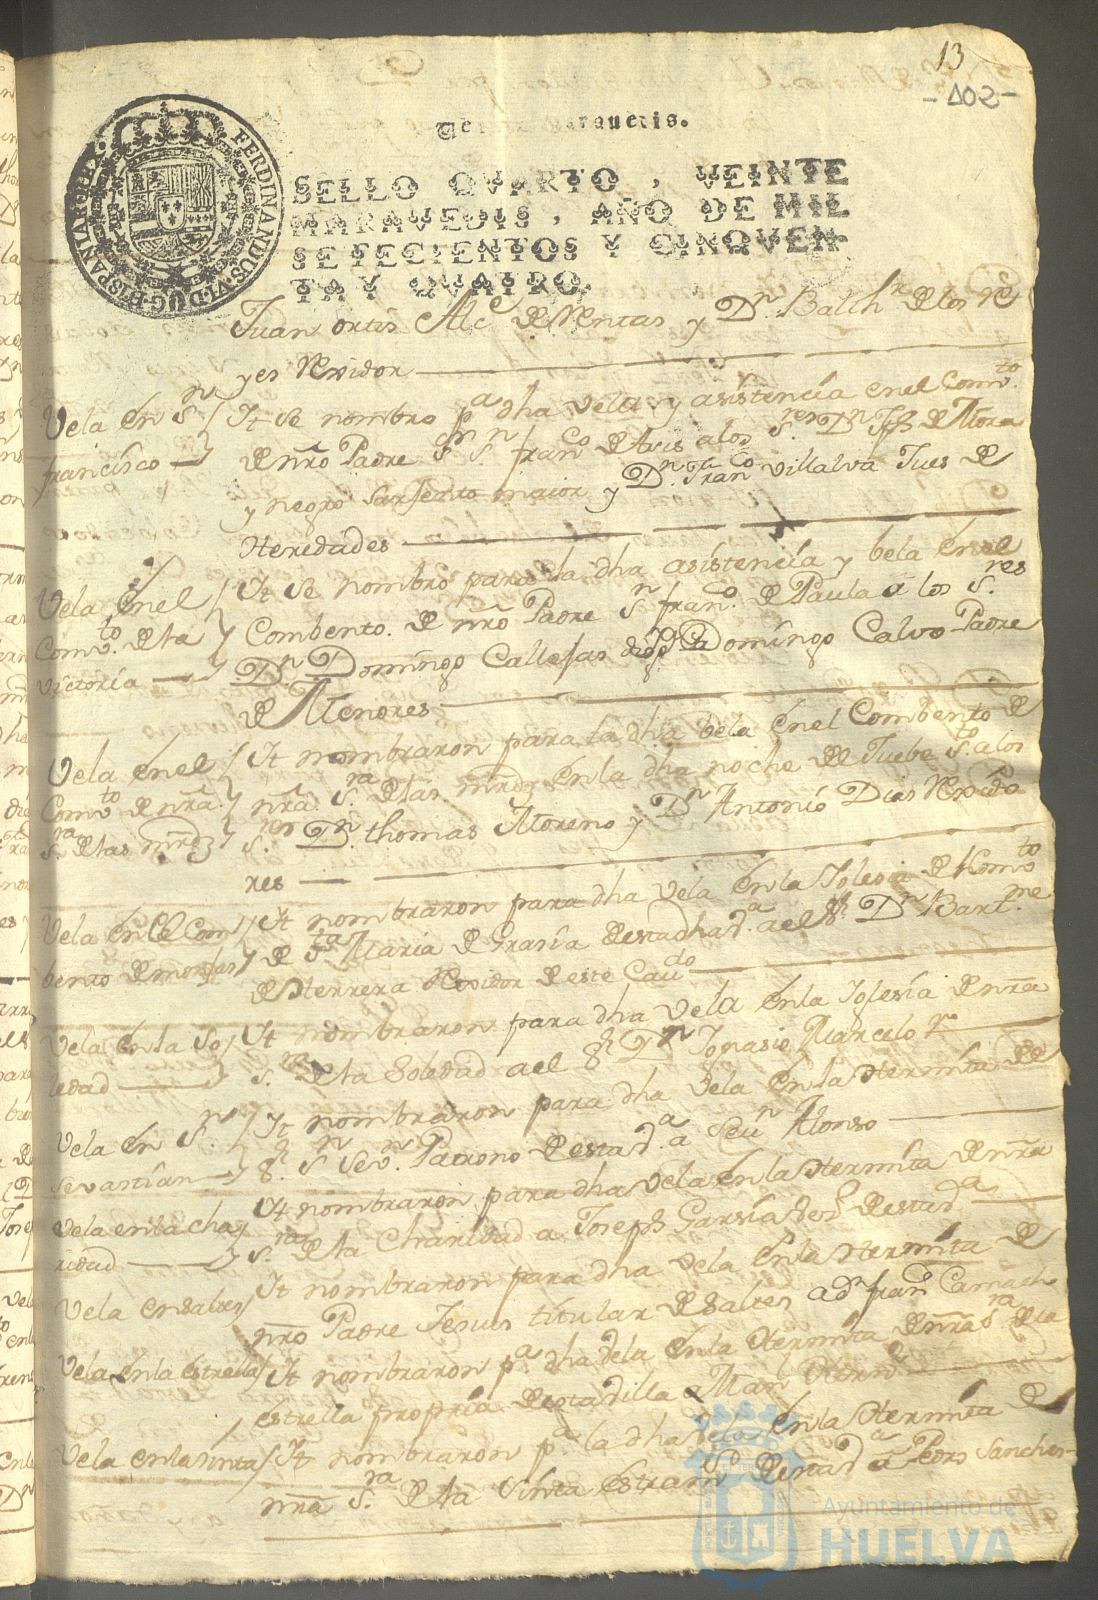 13
-102-
SELLO QVARTO, VEINTE
MARAVEDIS, AÑO DE MIL
SETECIENTOS Y CINQVEN
TA Y QVATRO.
FERDINANDUS VI D G HISPANIAR REX
Juan ortis Alc de Ventas y Dn Balthr de los Re
yes Rexidor
Vela en Sn
francisco
Yt se nombro pa dha vela y asistencia en el Comvto
de nro Padre Sn franco de Asis a los Sres Dn Jph de Mora
y negro Sarjento maior y Dn Franco Villalva Jues de
Heredades
Vela en el
Comvto de la
victoria
Yt se nombro para la dha asistencia y bela en el
Combento de nro Padre Sn franco de Paula a los Sres
Dn Domingo Callejas Domingo Calvo Padre
de Menores
Vela en el
Comvto de nra
Sra de las mrdz
Yt nombraron para la dha bela en el Combento de
nra Sra de las mrdz en la dha noche de Juebe Sto a los
Sres Dn thomas Moreno y Dn Antonio Dias Rexido
res
Vela en el Com
bento de monjas
Yt nombraron para dha vela en la Iglesia de Comvto
de Sta Maria de Grasia de esta dha va a el Sr Dn Bartme
de Herrera Rexidor de este Cavdo
Vela en la So
ledad
Yt nombraron para dha vela en la Iglesia de nra
Sra de la Soledad a el Sr Dn Ignasio Marcelo
Vela en Sn
Sevastian
Yt nombraron para dha vela en la Hermita de
Sr Sn Sevn Patrono de esta va a Seun Alonso
Vela en la cha
ridad
Yt nombraron para dha vela en la Hermita de nra
Sra de la Charidad a Joseph Garsia de esta va
Vela en Saltes
Yt nombraron para dha vela en la Hermita de
nro Padre Jesus titular de Saltes a dn franco Camacho
Vela en la estrella
Yt nombraron pa dha vela en la Hermita de nra Sra de la
estrella propria de esta villa a Manl Hern
Vela en la sinta
Yt nombraron pa la dha vela en la Hermita de
nra Sra de la Sinta estram de esta va a Pedro Sanches
Ayuntamiento de
HUELVA